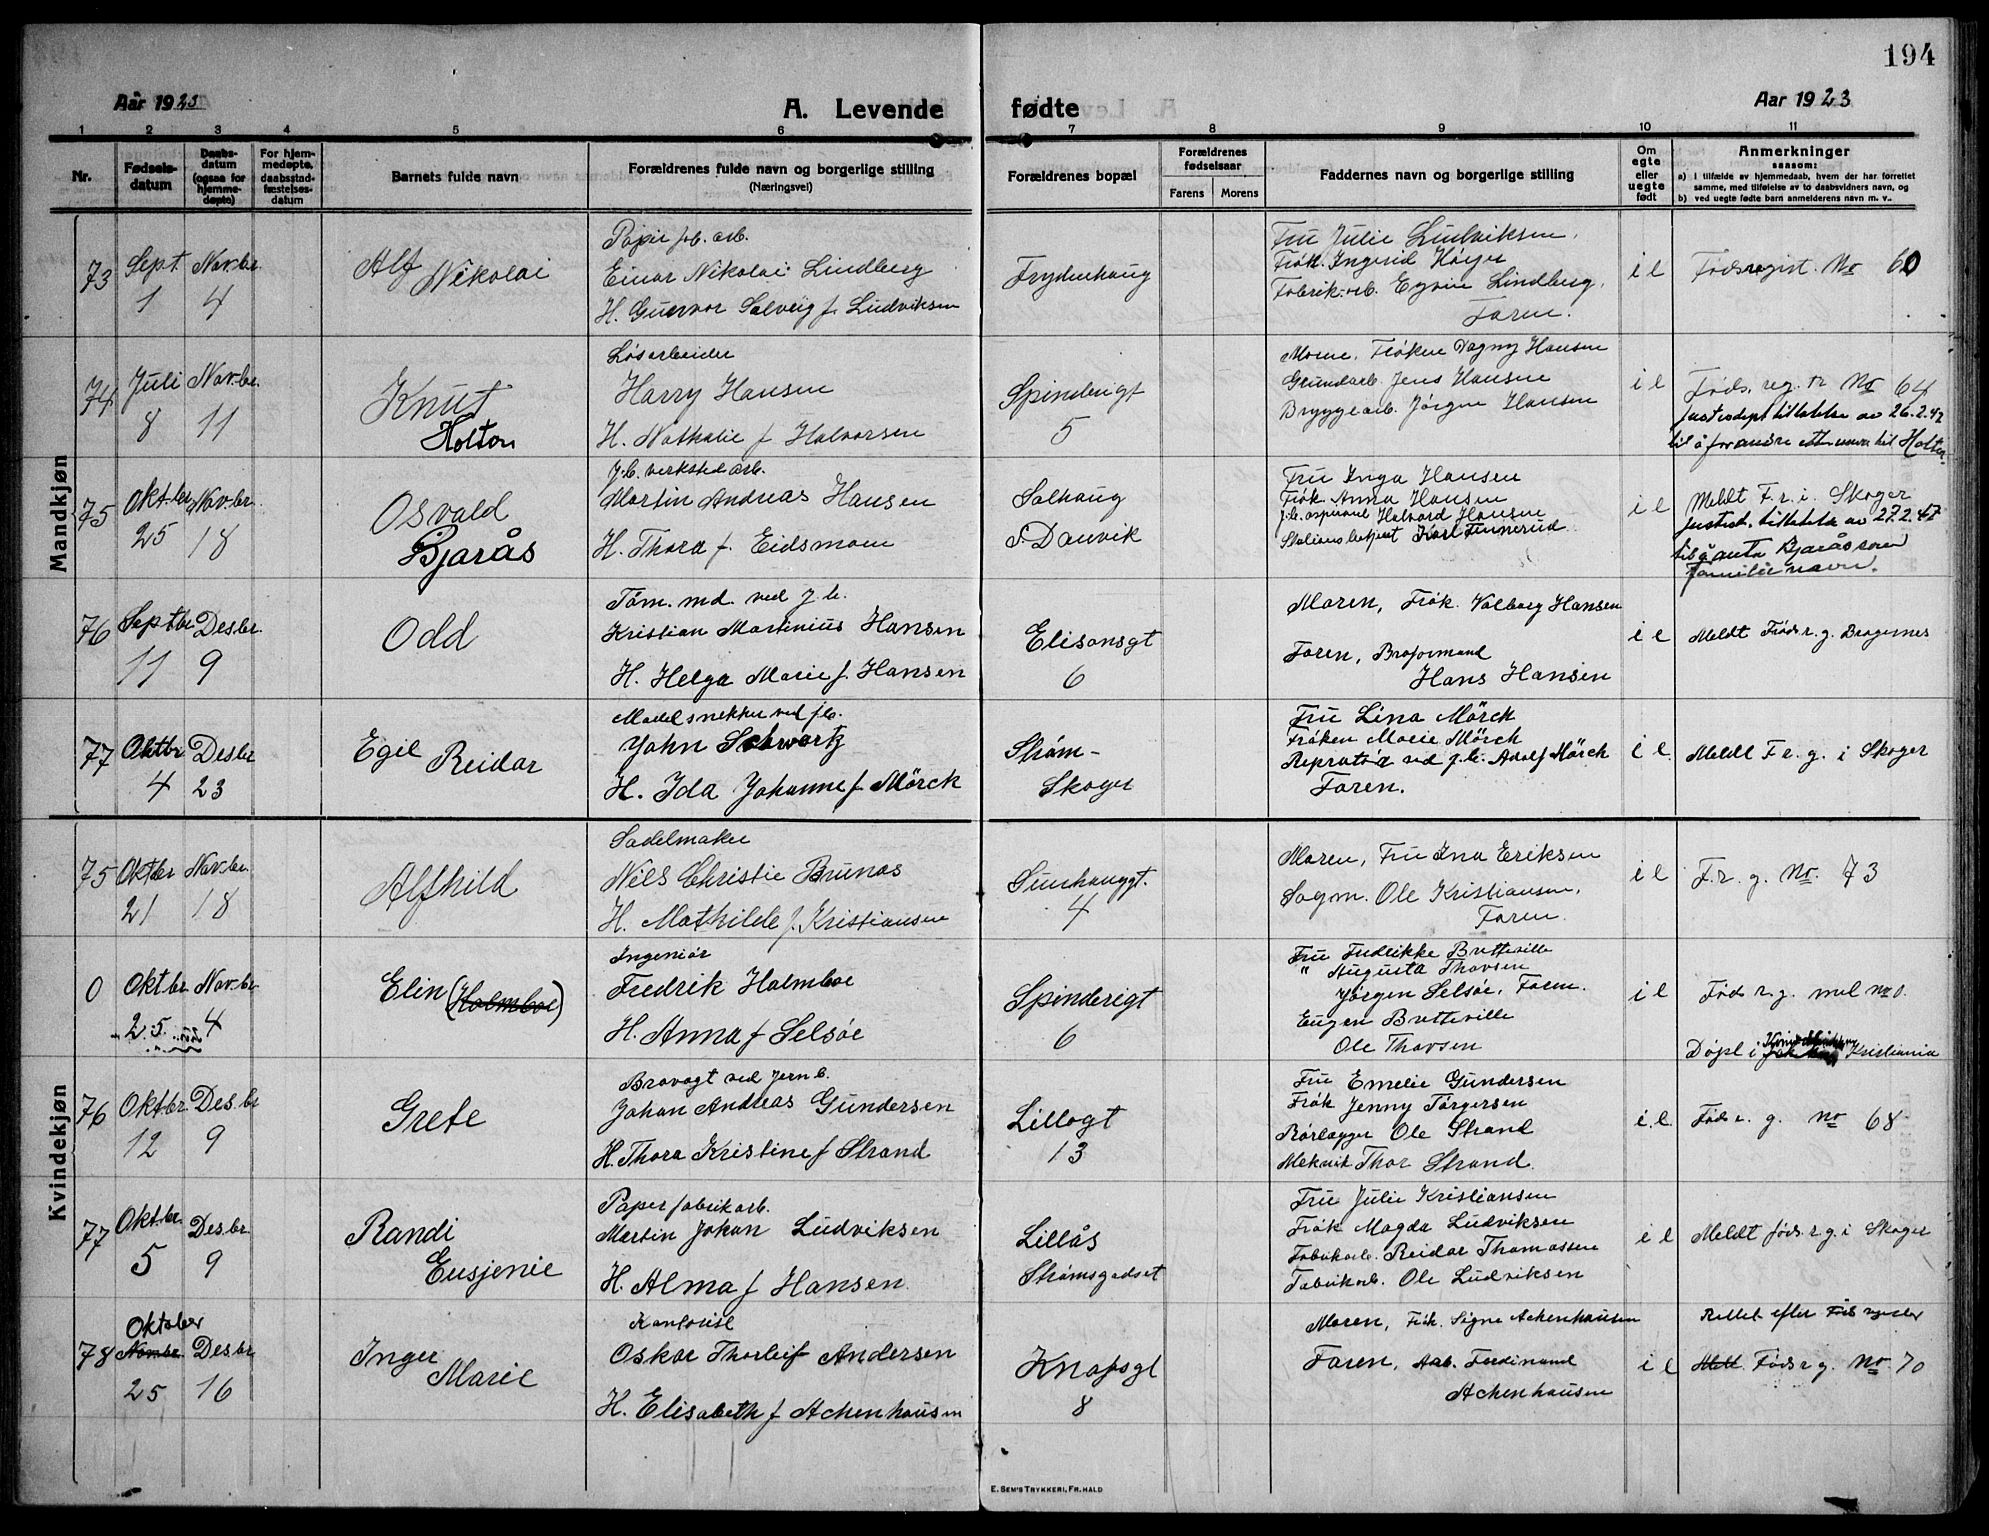 194
Aar 1923
A. Levende
fødte
Aar 1923
1 2 3 4 5 6 7 8 9 10 11
Nr.
Fødsels-
datum
Daabs-
datum
(ogsaa for
hjemme-
døpte)
For hjem-
medøpte,
daabsstad-
fæstelses-
datum
Barnets fulde navn
Forældrenes fulde navn og borgerlige stilling
(Næringsvei)
Forældrenes bopæl
Forældrenes
fødselsaar
Farens Morens
Faddernes navn og borgerlige stilling
Om
egte
eller
uegte
født
Anmerkninger
saasom:
a) i tilfælde av hjemmedaab, hvem der har forrettet
samme, med tilføielse av to daabsvidners navn, og
b) ved uegte fødte barn anmelderens navn m. v..
Mandkjøn
73
Sept.
1
Nov.br.
4
Alf
Nikolai
Papir fb. arb.
Einar Nikolai Lindberg
H. Gunvor Solveig f. Ludviksen
Frydenhaug
Fru Julie Ludviksen,
Frøk. Ingerid
Fabrik.arb. Lindberg,
Faren.
i e
Fødsregist. No 60
74
Juli
8
Nov.br.
11
Knut
Holton
Løsarbeider
Harry Hansen
H. Nathalie f Halvorsen
Spinderigt
5
Moren, Frøken Dagny Hansen
Grundarb. Jens Hansen
Bryggearb. Jørgen Hansen
i e
Føds. reg. nr No 64
Justisdept tillatelse av 26.2.42
til å forandre etternavn til
75
Okt.br
25
Nov.br.
18
Osvald
Bjarås
J.b. verksted arb.
Martin Andreas Hansen
H. Thora f. Eidsmoen
Solhaug
S. Danvik
Fru Inga Hansen
Frøk. Anna Hansen
J.b. aspirant Halvord Hansen
Stationsbetjent Karl Finnerud
i e
Meldt F. r. i. Skoger
Justisd. tillatelse av 27.2.47
til å anta Bjarås som
familienavn.
76
Septbr
11
Desbr.
9
Odd
Tøm. md. ved J.b.
Kristian Martinius Hansen
H. Helga Marie f. Hansen
Elisonsgt
6
Moren, Frøk. Valborg Hansen
Faren, Broformand
Hans Hansen
i e
Meldt Føds r. g. Bragernes
77
Oktbr
4
Desbr
23
Egil
Reidar
Modelsnekker ved jb.
John Schwartz
H. Ida Johanne f Mörck
Strøm-
Skoger
Fru Lina Mörck
Frøken Marie Mörch
Repratør ved j.b. Adolf Mörck
Faren.
i e.
Meldt F r. g. i Skoger
Kvindekjøn
75
Oktbr
21
Nov.br.
18
Alfhild
Sadelmaker
Nils Christie Brunas
H. Mathilde f. Kristiansen
Sunhauggt.
4
Moren, Fru Ina Eriksen
Sagm. Ole Kristiansen,
Faren.
i e
F. r. g. No 73
0
Okt.br
25.
Nov.br
4
Elin (Holmboe)
Ingeniør
Fredrik Holmboe
H. Anna f Selsøe
Spinderigt
6
Fru Fredrikke Butteville
" Augusta Thovsen
Jørgen Selsöe, Faren.
Eugen Butteville
Ole Thovsen
i e
Føds r. g. mel no 0.
Døpt i Kristiania
76
Oktbr
12
Des.br
9
Grete
Brovogt ved Jernb.
Johan Andreas Gundersen
H. Thora Kristine f Strand
Lillogt
13
Fru Emelie Gundersen
Frøk Jenny Törgersen
Rörlægger Ole Strand
Meknik Thor Strand.
i. e.
Føds r. g. no 68
77
Okt.br.
5
Des.br.
9
Randi
Eusjenie
Paper fabrikarb.
Martin Johan Ludviksen
H. Alma f Hansen
Lillås
Strømsgodset
Fru Julie Kristiansen
Frøk Magda Ludviksen
Fabrikarb. Reidar Thomassen
Fabrikarb. Ole Ludviksen
i e
Meldt føds r g. i Skoger
78
Oktober
Novbr.
25
Desbr
16
Inger
Marie
Oskar Thorleif Andersen
H. Elisabeth f Achenhausen
Knofsgt
8
Moren, Frk. Signe Achenhausen
Faren, Arb. Ferdinand
Achenhausen
i e
Rettet efter
Meldt. Føds r g. No. 70
E. SEM'S TRYKKERI, FR.HALD